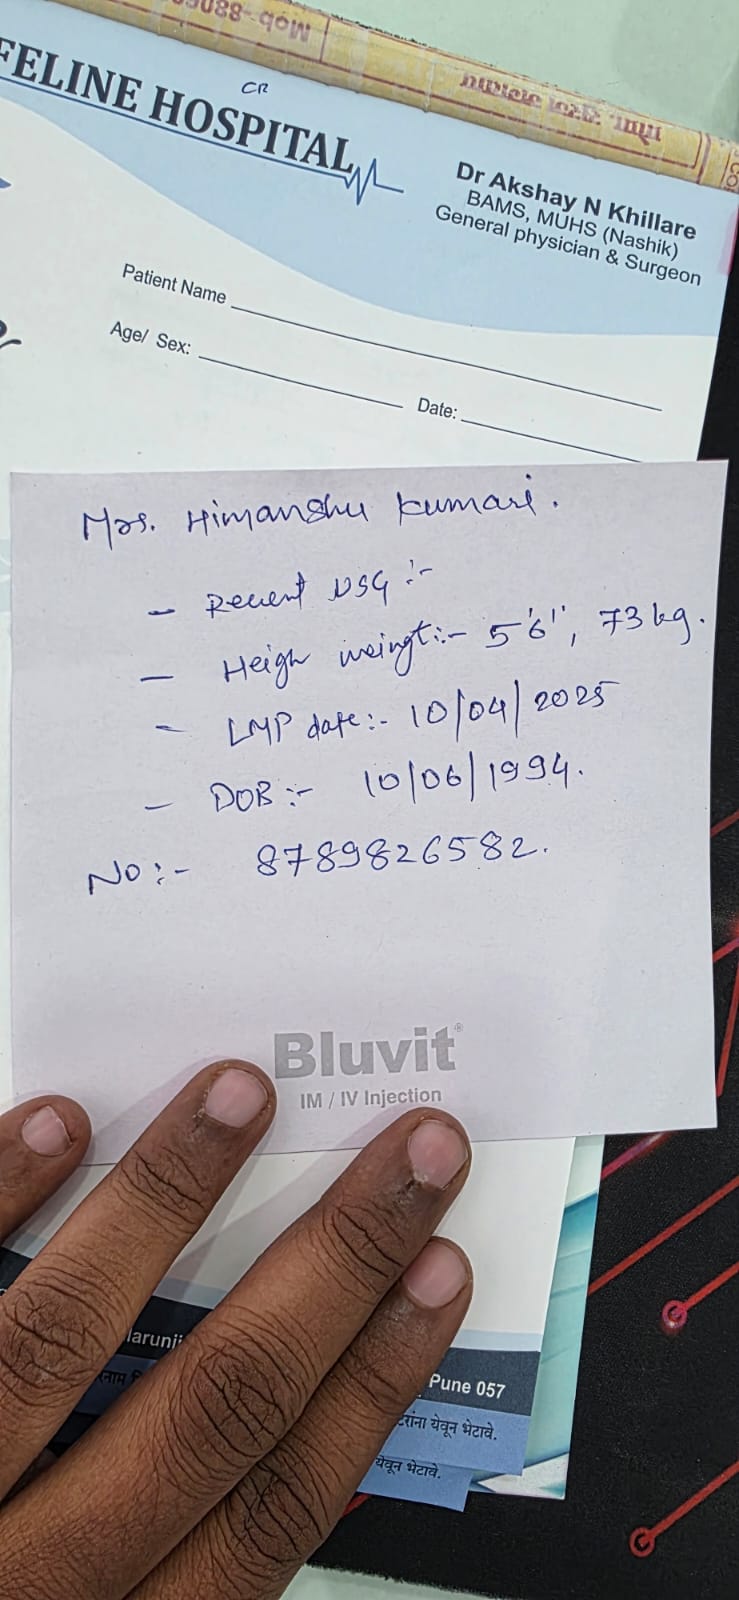 Mob-880
FELINE HOSPITAL
CR
Dr Akshay N Khillare
BAMS, MUHS (Nashik)
General physician & Surgeon
Patient Name
Age/ Sex:
Date:
Mrs. Himanshu Kumari.
- Recent USG :-
- Heigh weingt:- 5'6'', 73 kg.
- LMP date:- 10/04/2025
- DOB :- 10/06/1994.
No :- 8789826582.
Bluvit®
IM / IV Injection
Marunji
Pune 057
येवून भेटावे.
येवून भेटावे.